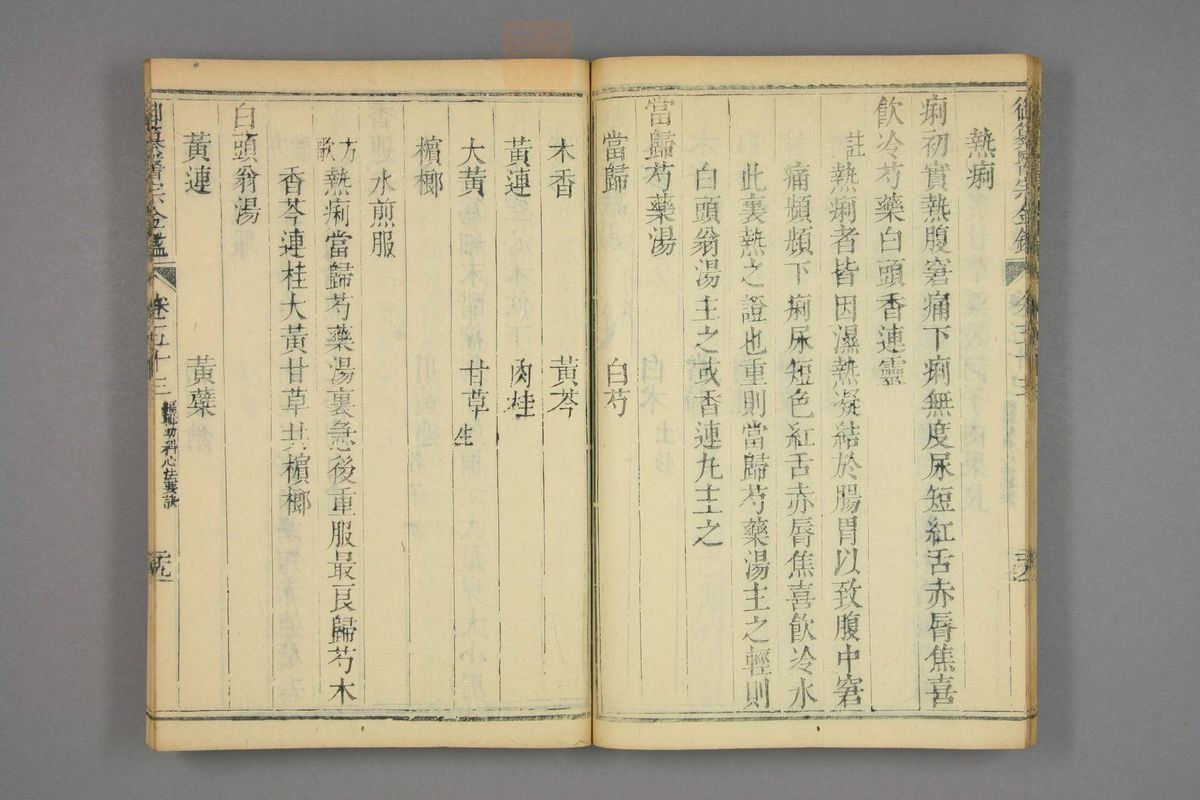 熱痢
痢初實熱腹窘痛下痢無度尿短紅舌赤脣焦喜
飲冷芍藥白頭香連靈
註 熱痢者皆因濕熱凝結於腸胃以致腹中窘
痛頻頻下痢尿短色紅舌赤脣焦喜飲冷水
此裏熱之證也重則當歸芍藥湯主之輕則
白頭翁湯主之或香連丸主之
當歸芍藥湯
當歸 白芍
木香 黃芩
黃連 肉桂
大黃 甘草生
檳榔
水煎服
方歌 熱痢當歸芍藥湯裏急後重服最良歸芍木
香芩連桂大黃甘草共檳榔
白頭翁湯
黃連 黃蘗
御纂醫宗金鑑 卷五十三 編輯幼科心法要訣